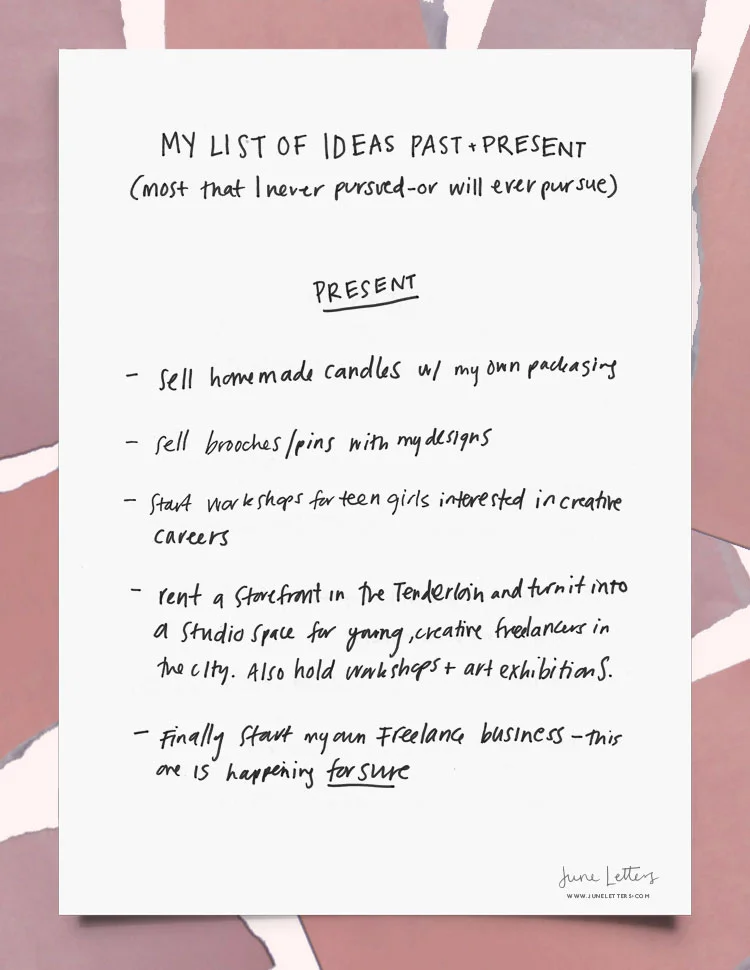 MY LIST OF IDEAS PAST + PRESENT
(most that I never pursued - or will ever pursue)
PRESENT
- sell homemade candles w/ my own packaging
- sell brooches/pins with my designs
- Start workshops for teen girls interested in creative
careers
- rent a storefront in the Tenderloin and turn it into
a studio space for young, creative freelancers in
the city. Also hold workshops + art exhibitions.
- Finally start my own Freelance business - this
one is happening for sure
June Letters
WWW.JUNELETTERS.COM